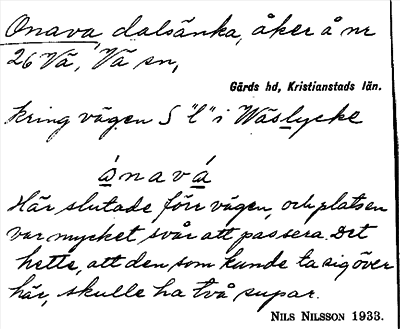 Onava dalsänka, åker å nr
26 Vä, Vä sn,
Gärds hd, Kristianstads län.
kring vägen S "l" i Wäslycke
ånavá
Här slutade förr vägen, och platsen
var mycket svår att passera. Det
hette, att den som kunde ta sig över
här, skulle ha två supar.
NILS NILSSON 1933.